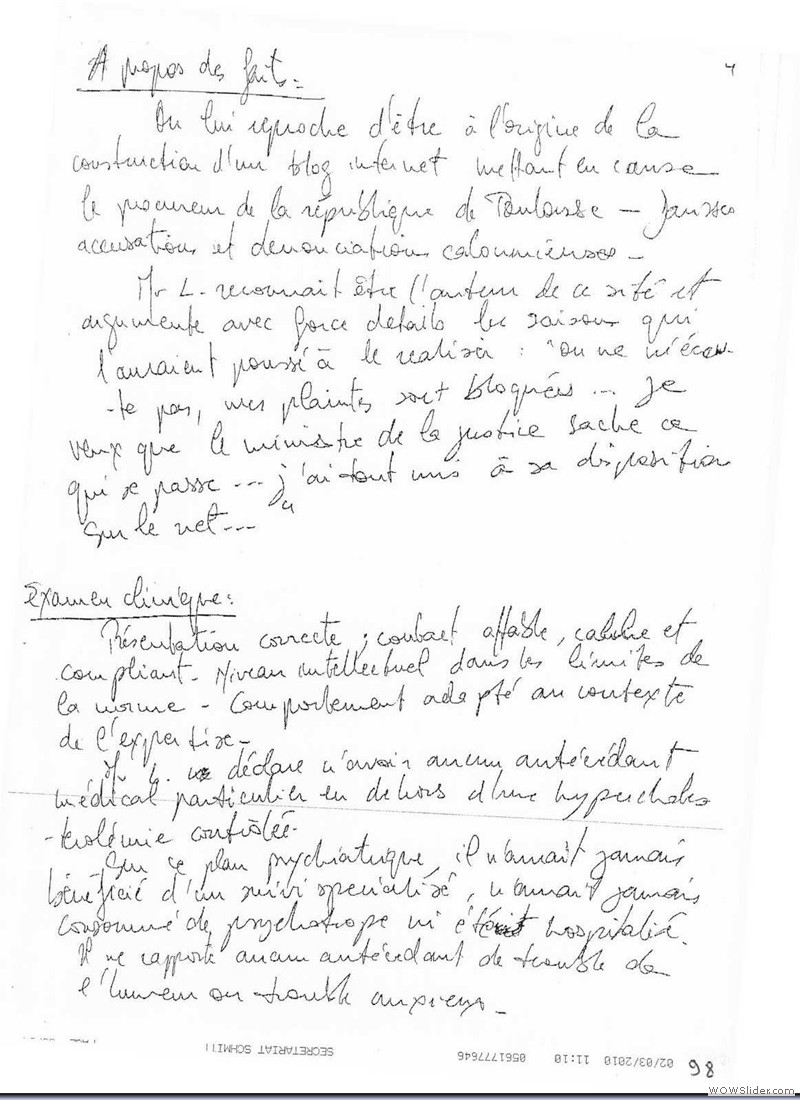 4
A propos des faits:
On lui reproche d'être à l'origine de la
construction d'un blog internet mettant en cause
le procureur de la république de Toulouse - fausses
accusations et denonciations calomnieuses -
Mr L. reconnait être l'auteur de ce site et
argumente avec force details les raisons qui
l'auraient poussé à le realiser : "on ne m'écou-
-te pas, mes plaintes sont bloquées ... Je
veux que le ministre de la justice sache ce
qui se passe ... j'ai tout mis à sa disposition
sur le net ... "
Examen clinique:
Présentation correcte ; contact affable, calme et
compliant. Niveau intellectuel dans les limites de
la norme - Comportement adapté au contexte
de l'expertise -
Mr L. déclare n'avoir aucun antécédant
médical particulier en dehors d'une hypercholes
-terolémie contrôlée.
Sur ce plan psychiatrique, il n'aurait jamais
bénéficié d'un suivi specialisé, n'aurait jamais
consommé de psychotrope ni été hospitalisé.
Il ne rapporte aucun antécédant de trouble de
l'humeur ou trouble anxieux -
02/03/2010 11:10 0561777646 SECRETARIAT SCHMITT
98
WOWSlider.com